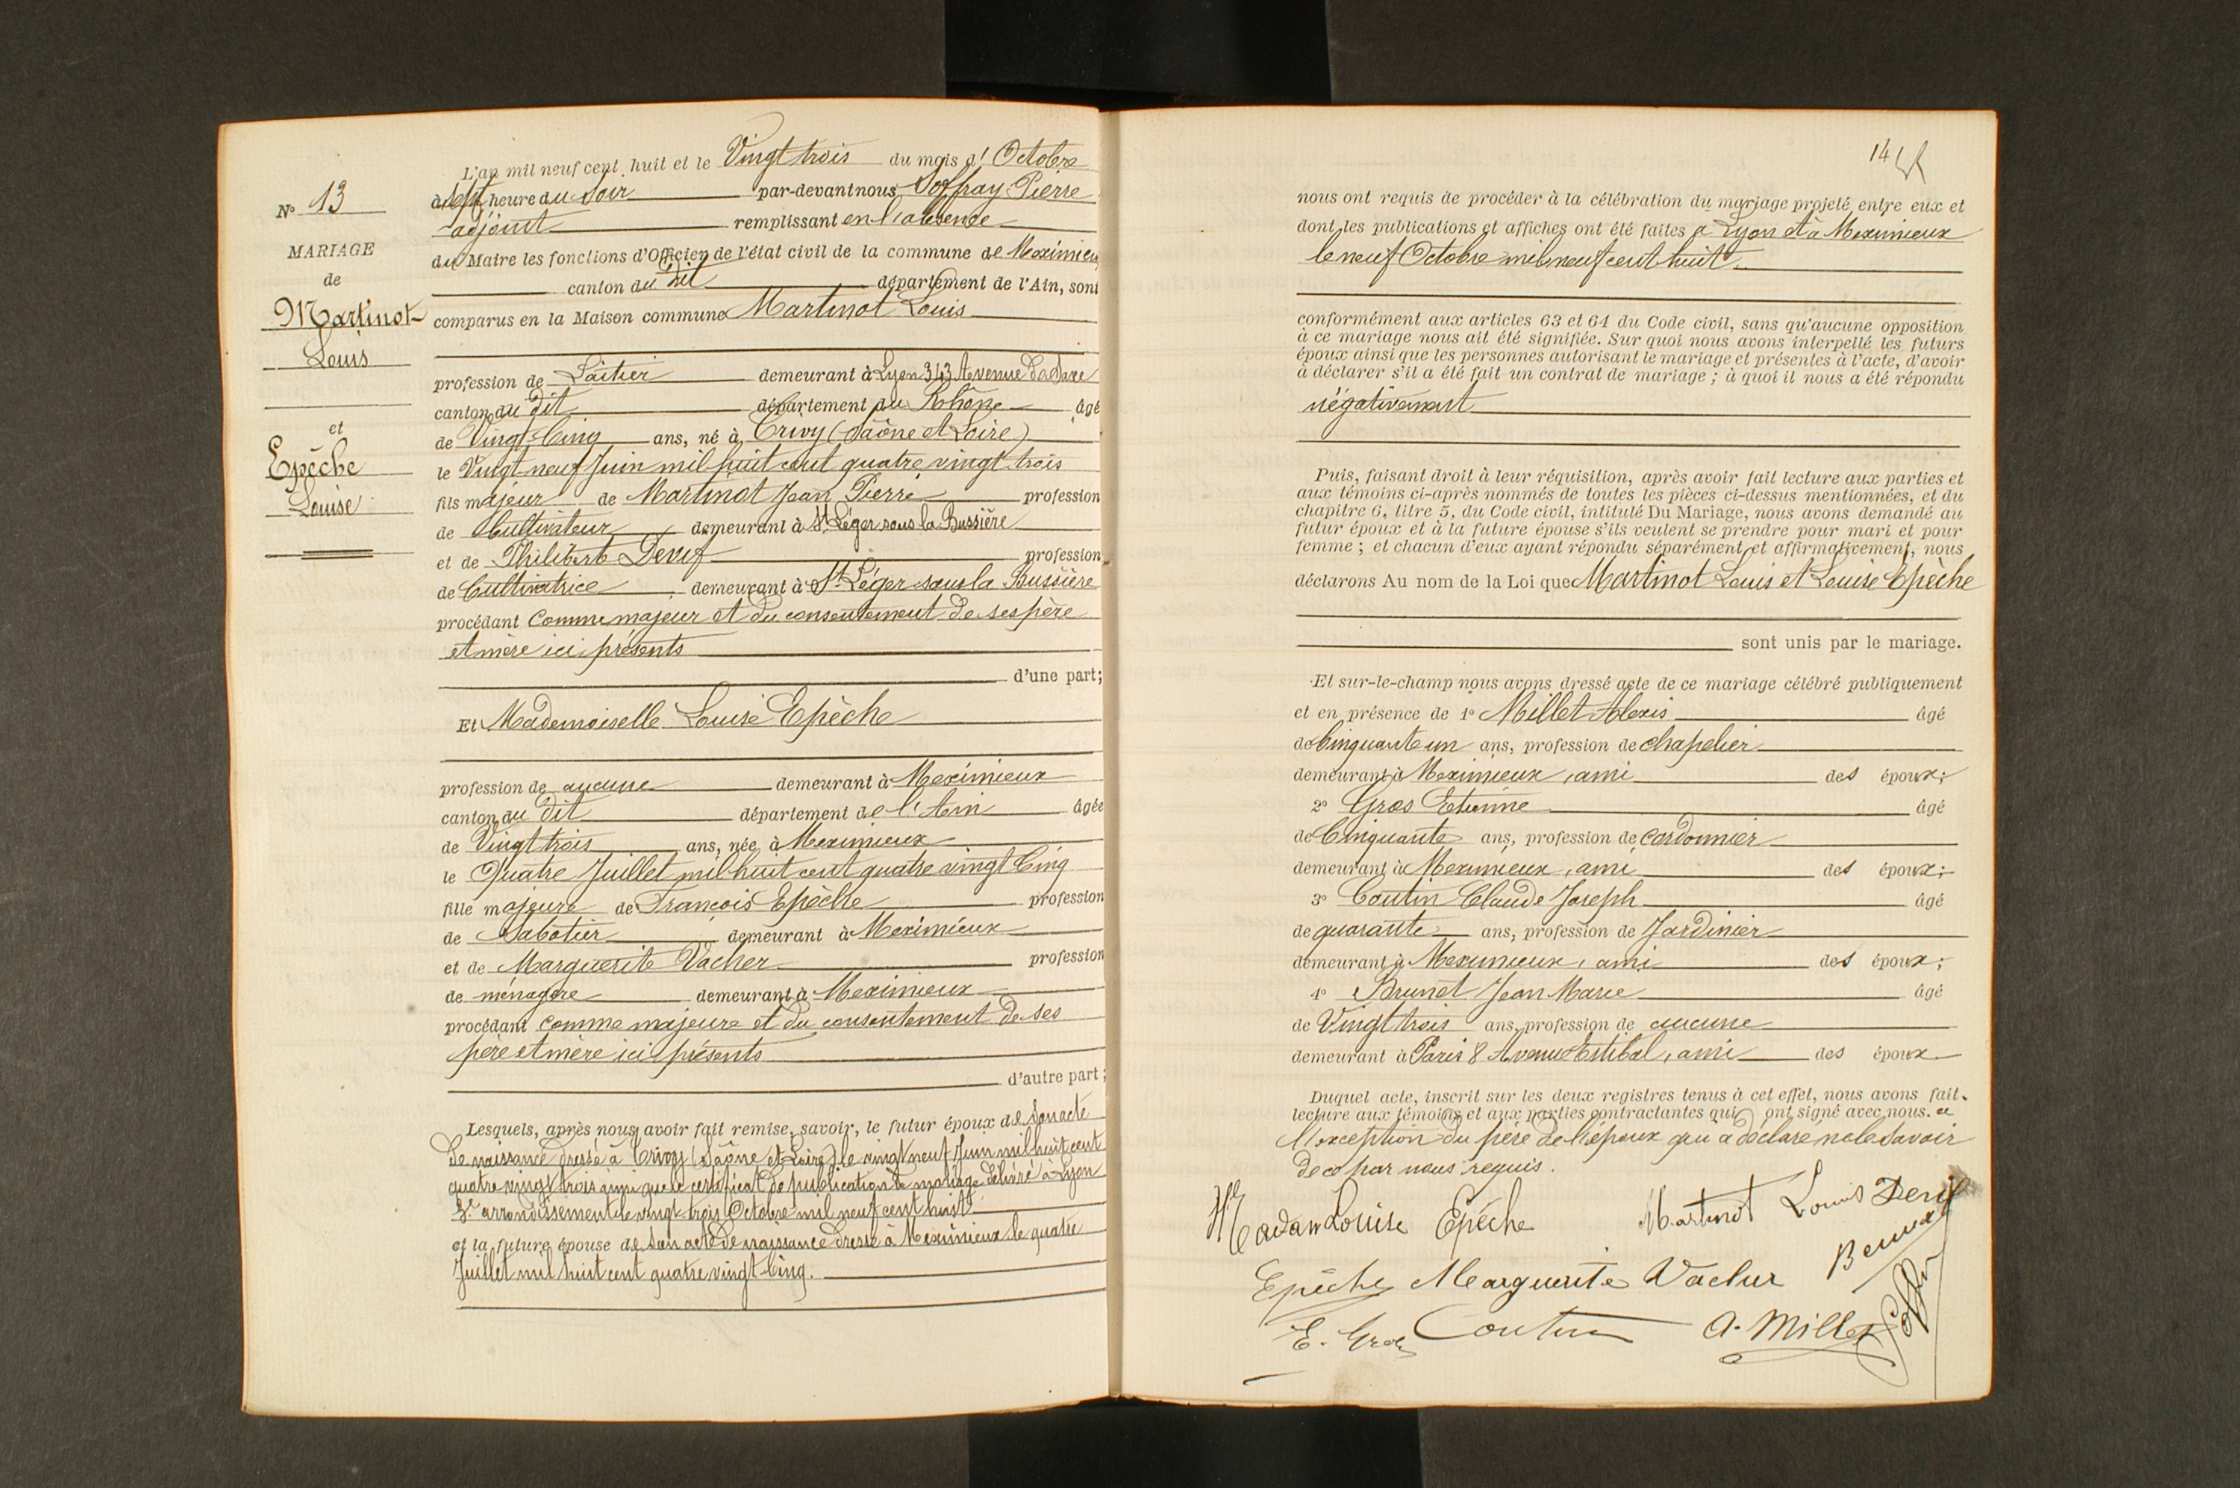 N° 13
MARIAGE
de
Martinot
Louis
et
Epèche
Louise
L'an mil neuf cent huit et le Vingt trois du mois d'Octobre
à sept heure du Soir par-devant nous Joffray Pierre
adjoint remplissant en l'absence
du Maire les fonctions d'Officier de l'état civil de la commune de Meximieux
canton du dit département de l'Ain, sont
comparus en la Maison commune Martinot Louis
profession de Laitier demeurant à Lyon 343 Avenue de Saxe
canton du dit département du Rhône âgé
de Vingt-Cinq ans, né à Crivy (Saône et Loire)
le Vingt neuf Juin mil huit cent quatre vingt trois
fils majeur de Martinot Jean Pierre profession
de Cultivateur demeurant à St Léger sous la Bussière
et de Philiberte Devif profession
de Cultivatrice demeurant à St Léger sous la Bussière
procédant comme majeur et du consentement de ses père
et mère ici présents
d'une part;
Et Mademoiselle Louise Epèche
profession de aucune demeurant à Meximieux
canton du dit département de l'Ain âgée
de Vingt trois ans, née à Meximieux
le Quatre Juillet mil huit cent quatre vingt Cinq
fille majeure de François Epèche profession
de Sabotier demeurant à Meximieux
et de Marguerite Vacher profession
de ménagère demeurant à Meximieux
procédant comme majeure et du consentement de ses
père et mère ici présents
d'autre part;
Lesquels, après nous avoir fait remise, savoir, le futur époux de Son acte
de naissance dressé à Crivy (Saône et Loire) le vingt neuf Juin mil huit cent
quatre vingt trois ainsi que le certificat de publication de mariage délivré à Lyon
3e arrondissement le vingt trois Octobre mil neuf cent huit
et la future épouse de Son acte de naissance dressé à Meximieux le quatre
Juillet mil huit cent quatre vingt Cinq.
14
nous ont requis de procéder à la célébration du mariage projeté entre eux et
dont les publications et affiches ont été faites à Lyon et à Meximieux
le neuf Octobre mil neuf cent huit
conformément aux articles 63 et 64 du Code civil, sans qu'aucune opposition
à ce mariage nous ait été signifiée. Sur quoi nous avons interpellé les futurs
époux ainsi que les personnes autorisant le mariage et présentes à l'acte, d'avoir
à déclarer s'il a été fait un contrat de mariage; à quoi il nous a été répondu
négativement
Puis, faisant droit à leur réquisition, après avoir fait lecture aux parties et
aux témoins ci-après nommés de toutes les pièces ci-dessus mentionnées, et du
chapitre 6, titre 5, du Code civil, intitulé Du Mariage, nous avons demandé au
futur époux et à la future épouse s'ils veulent se prendre pour mari et pour
femme; et chacun d'eux ayant répondu séparément et affirmativement, nous
déclarons Au nom de la Loi que Martinot Louis et Louise Epèche
sont unis par le mariage.
Et sur-le-champ nous avons dressé acte de ce mariage célébré publiquement
et en présence de 1° Millet Alexis âgé
de Cinquante un ans, profession de chapelier
demeurant à Meximieux, ami des époux;
2° Gros Etienne âgé
de Cinquante ans, profession de cordonnier
demeurant à Meximieux, ami des époux;
3° Coutin Claude Joseph âgé
de quarante ans, profession de Jardinier
demeurant à Meximieux, ami des époux;
4° Brunet Jean Marie âgé
de Vingt trois ans, profession de aucune
demeurant à Paris 8 Avenue Estibal, ami des époux
Duquel acte, inscrit sur les deux registres tenus à cet effet, nous avons fait
lecture aux témoins et aux parties contractantes qui ont signé avec nous. a
l'exception du père de l'époux qui a déclaré ne le savoir
de ce par nous requis.
Louise Epéche Martinot Louis Devif
Epêche Marguerite Vacher
E. Gros Coutin A. Millet